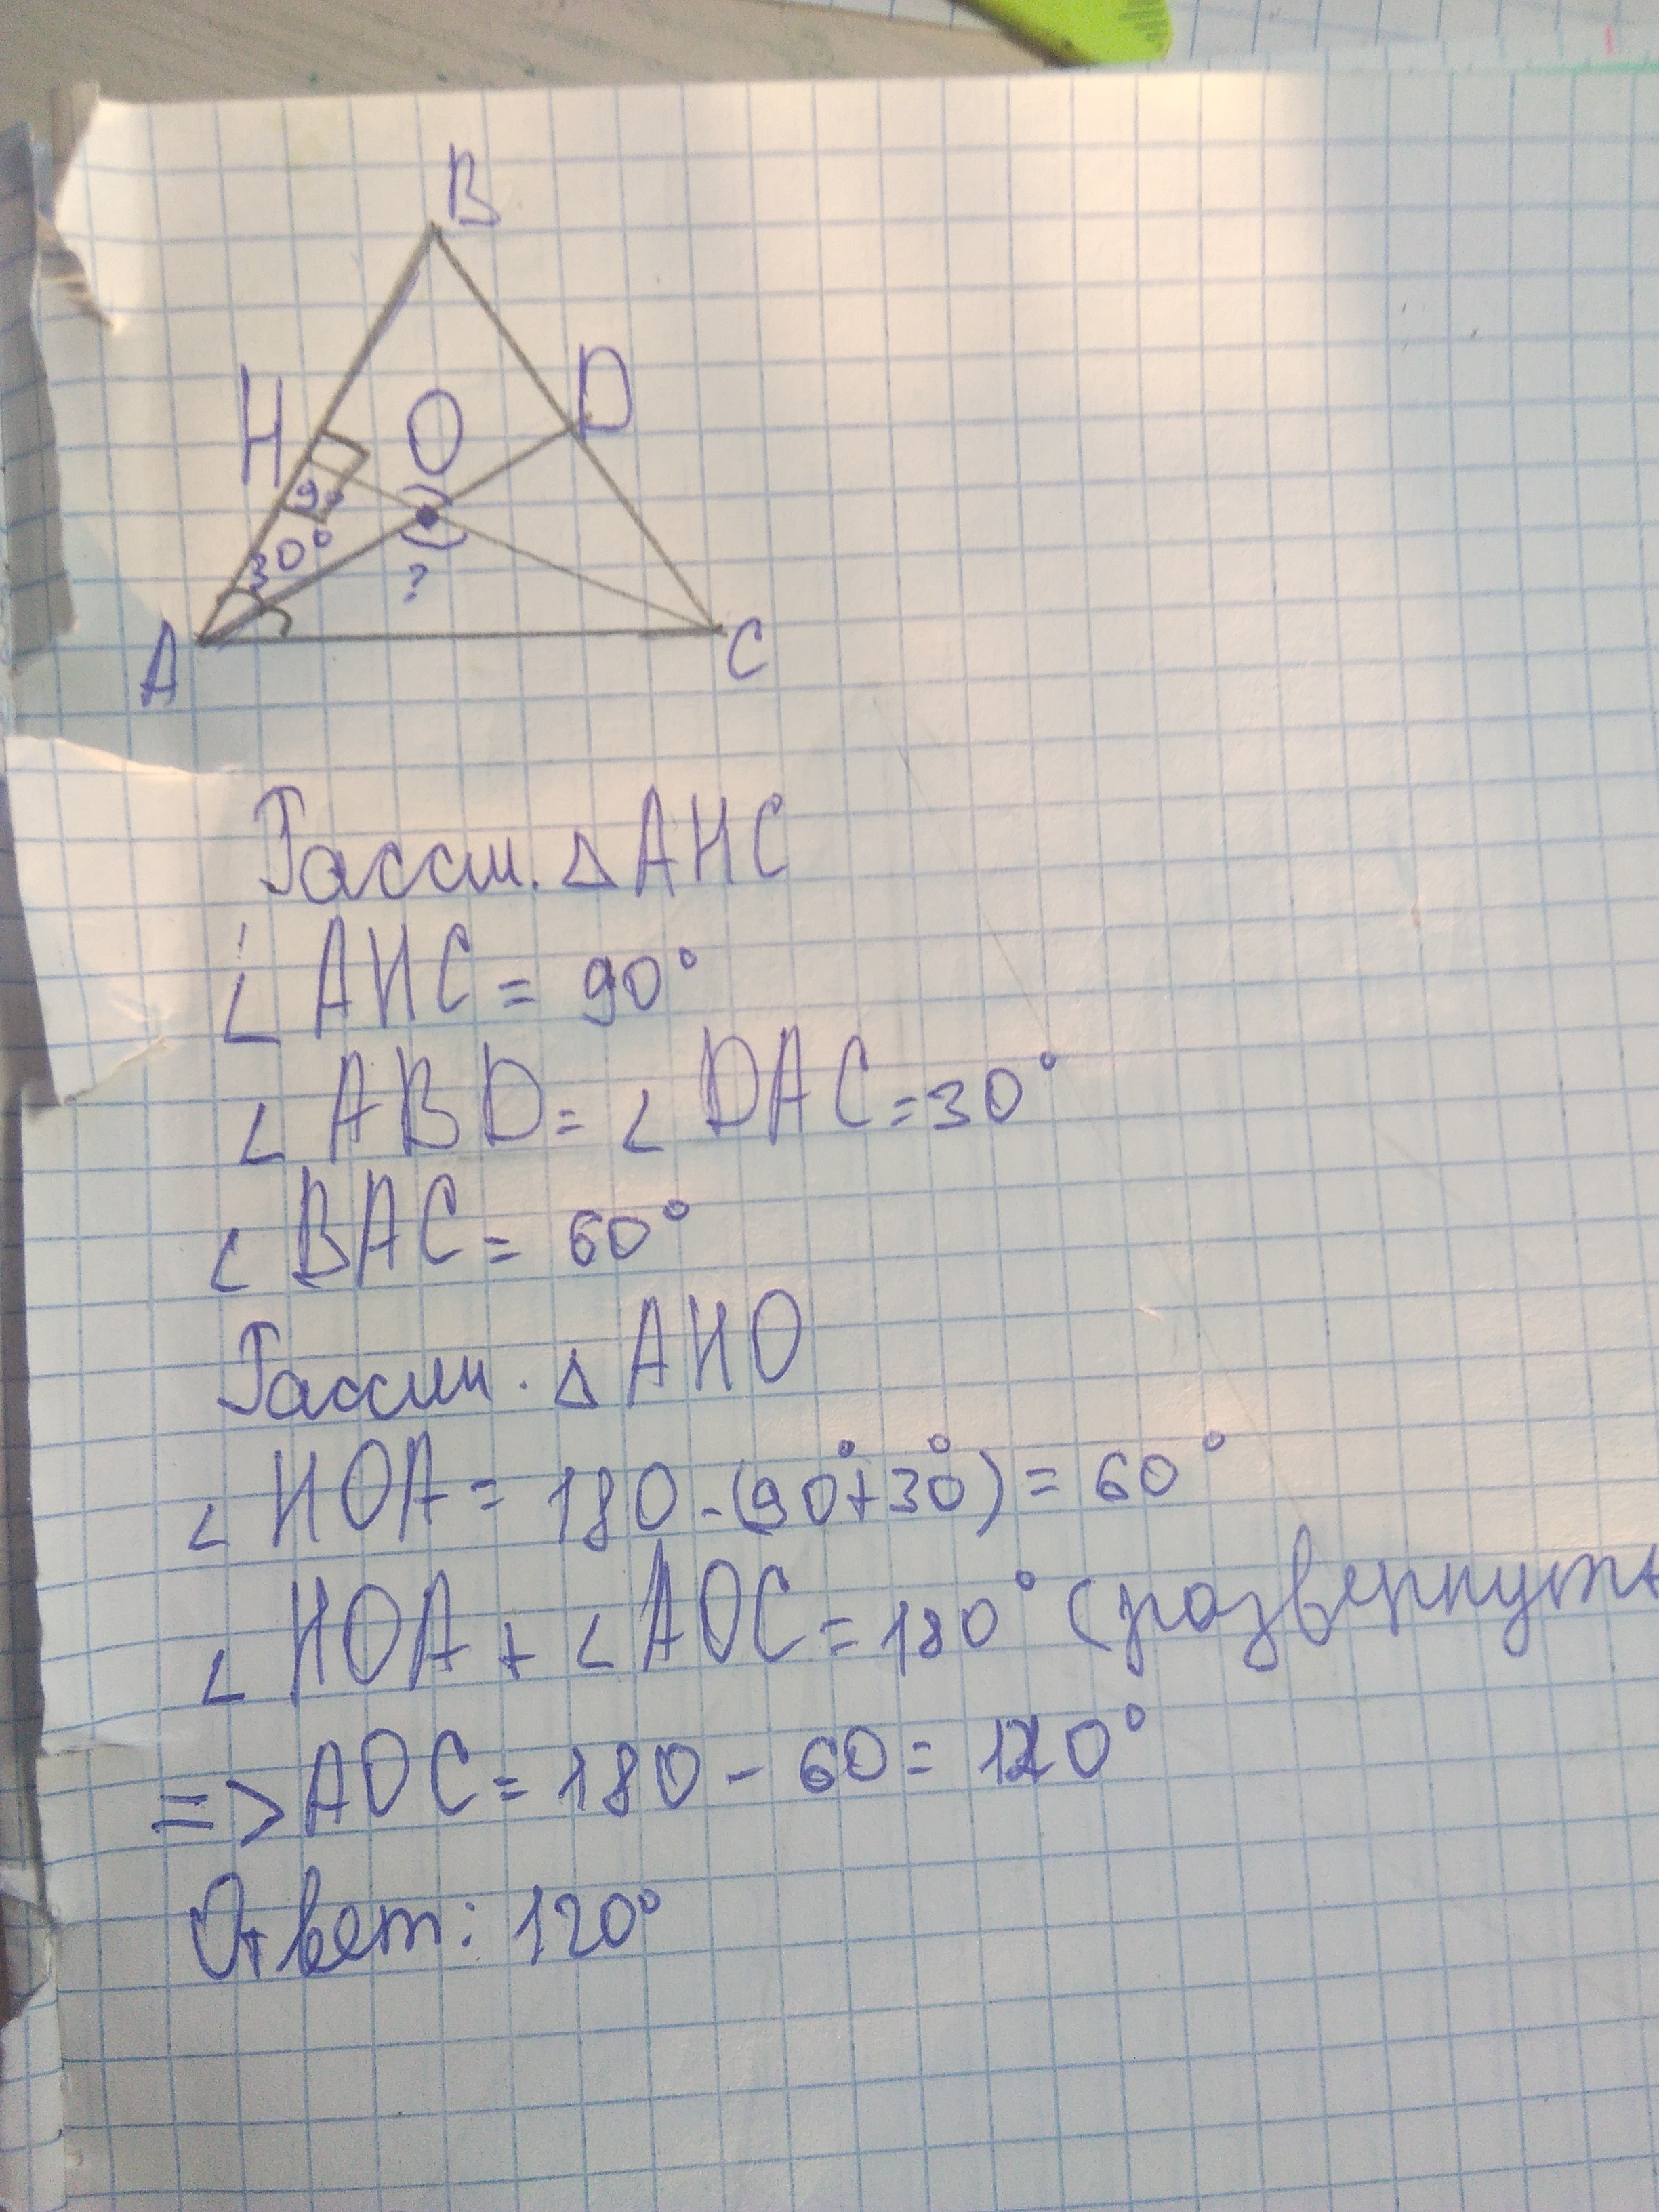 B
H
O
D
90
30°
?
A
C
Рассм. △AHC
∠AHC = 90°
∠ABD = ∠DAC = 30°
∠BAC = 60°
Рассм. △AHO
∠HOA = 180 - (90°+30°) = 60°
∠HOA + ∠AOC = 180° (развернут
=> AOC = 180 - 60 = 120°
Ответ: 120°